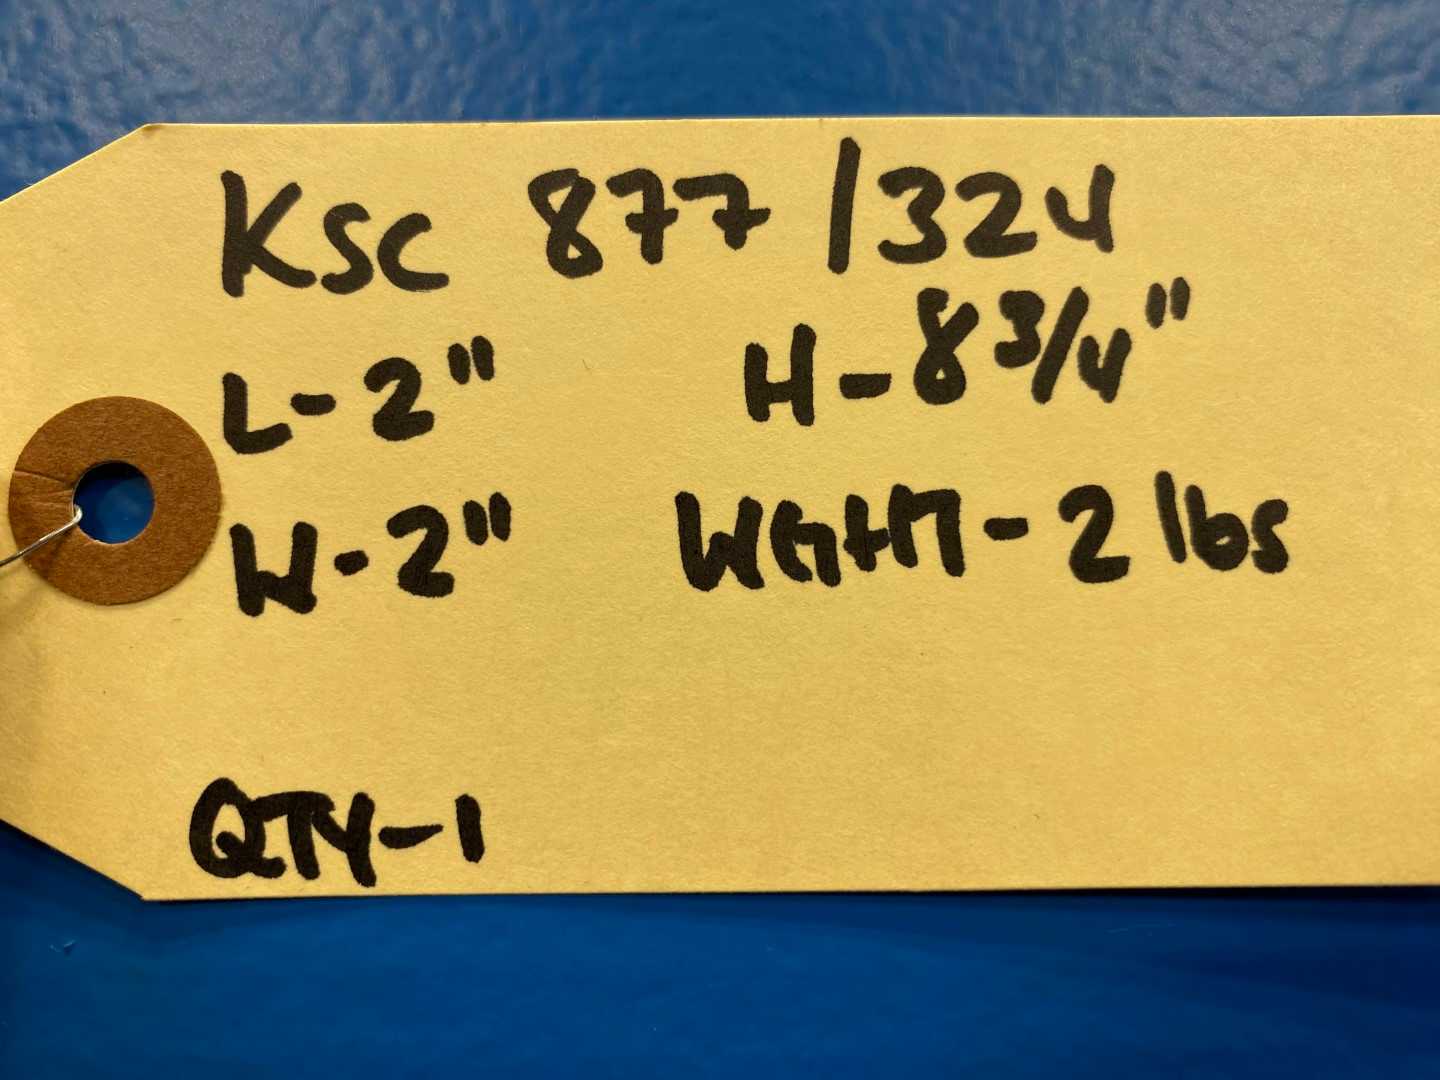 KSC 877 /324
L-2" H-8 3/4"
W-2" WGHT-2 lbs
QTY-1